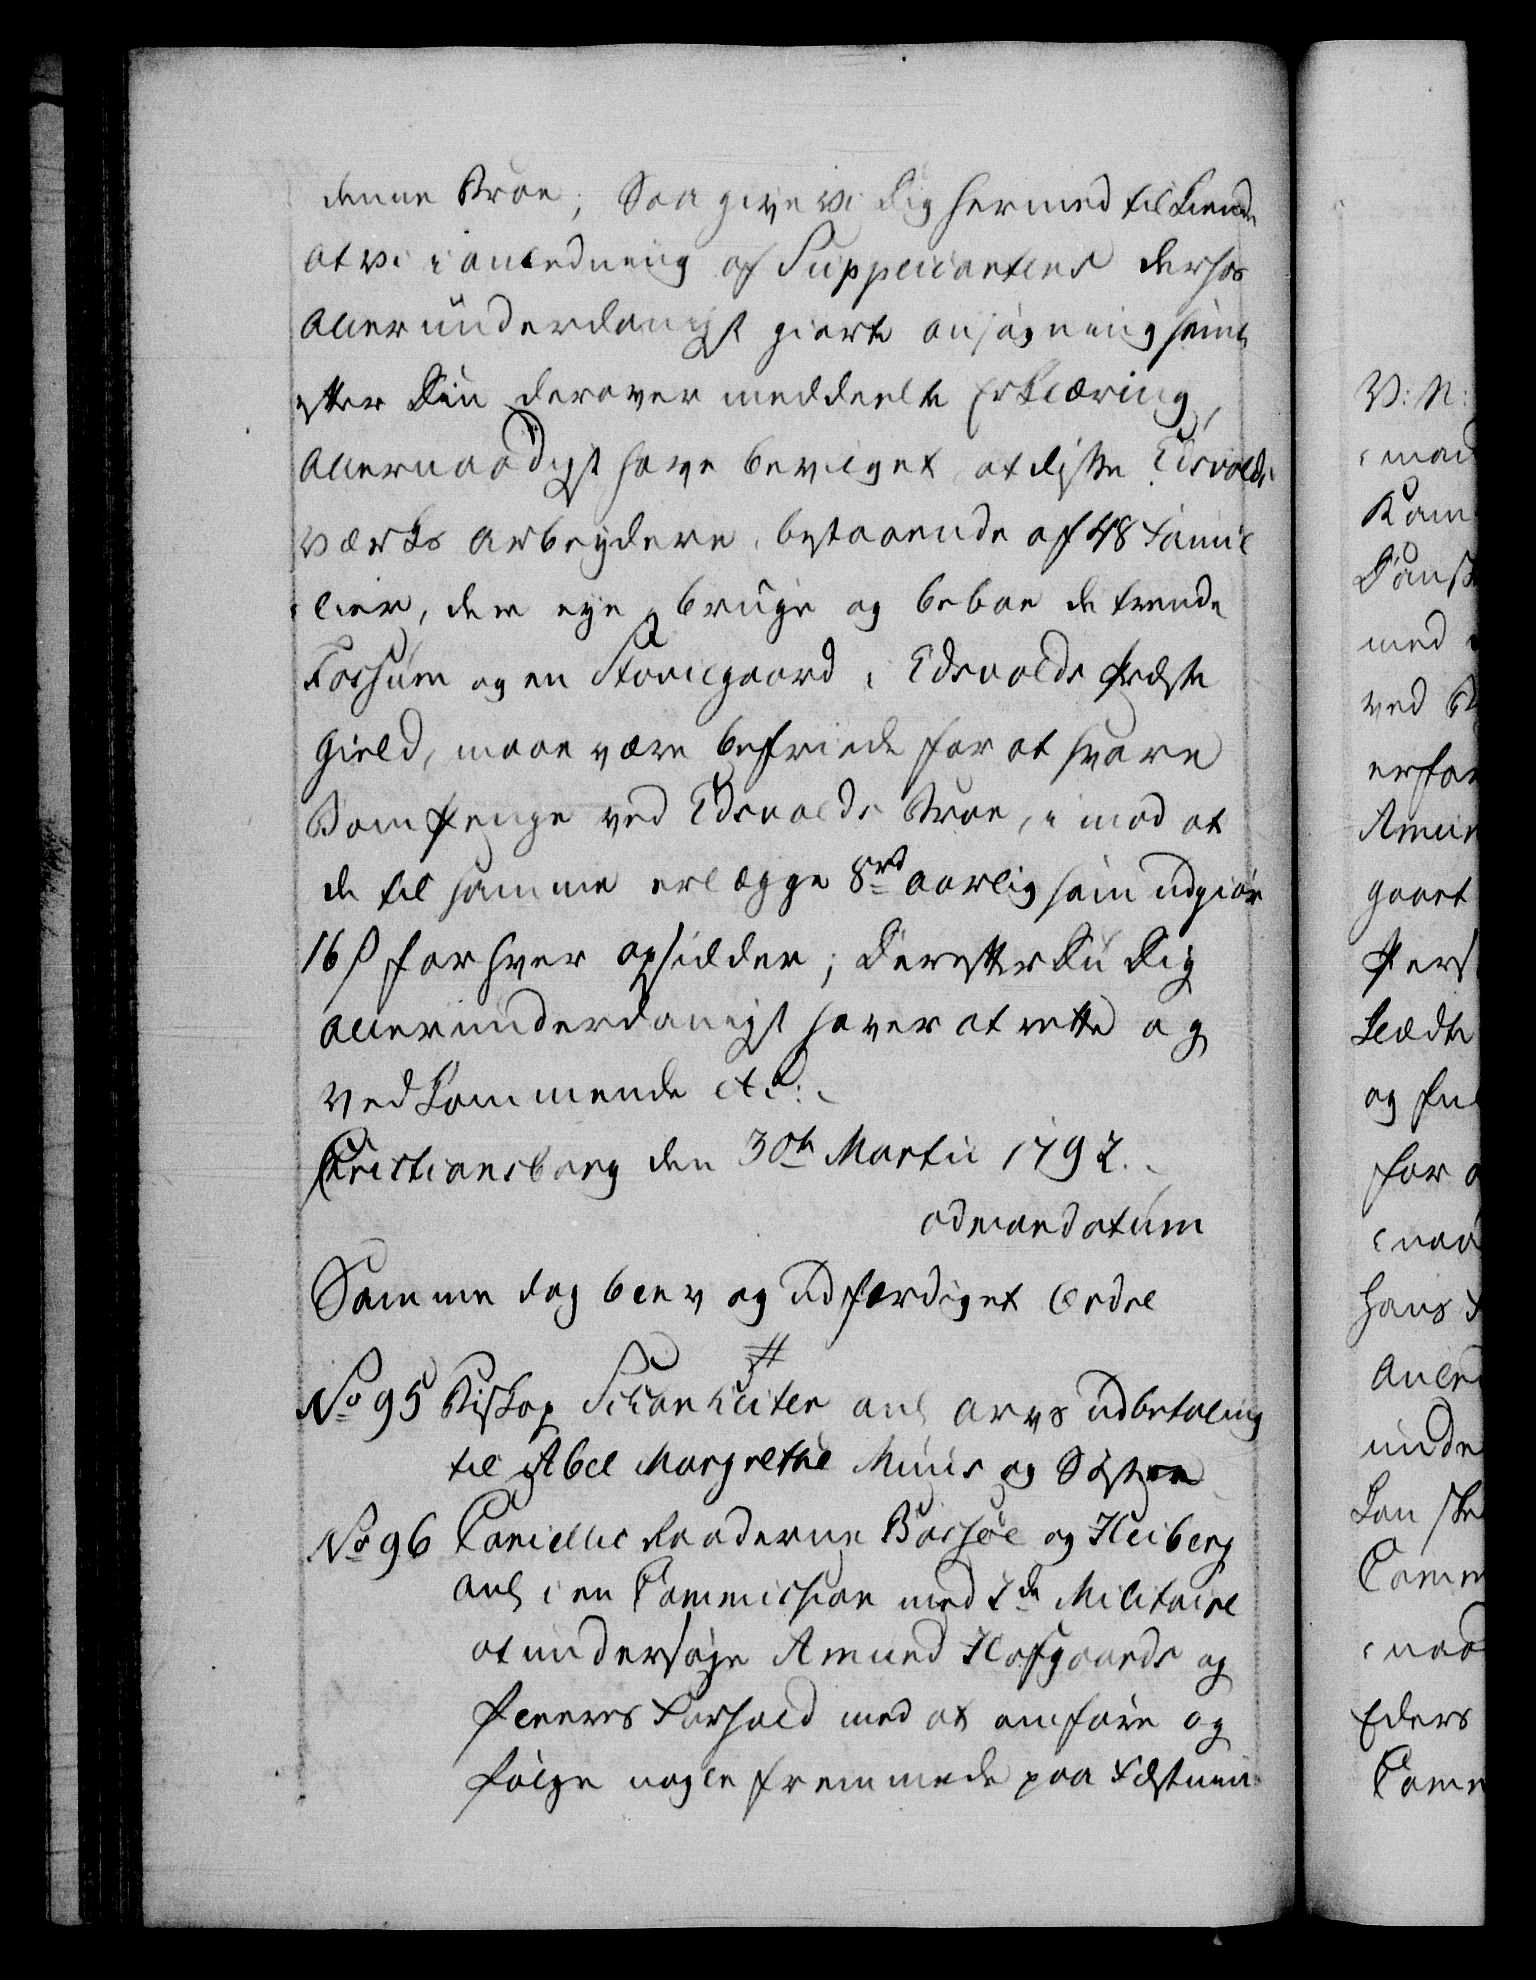 denne Broe; Saa give Vi Dig hermed tilkiende
at vi i anledning af Supplicantens derhos
allerunderdanigst giorte ansøgning samt
efter Din derover meddeelte Erklæring,
allernaadigst have bevilget at disse Eidsvolds
værks arbeydere, bestaaende af 48 Famil
lier, der eye, bruge og beboe de trende
Fossum og en Stovilgaard i Edsvolds Præste
Gield, maae være befriede for at svare
Bompenge ved Edsvolds Broe, i mod at
de til samme erlægge 8 rd aarlig som udgiør
16 s for hver opsidder; Derefter Du Dig
allerunderdanigst haver at rette og
vedkommende etc:
Christiansborg den 30te Martii 1792.
ad mandatum
Samme dag blev og udfærdiget Ordre
No 95 Biskop Schønheiter anl arvs udbetaling
til Abel Margrethe Muus og Søstre
No 96 Cancellie Raaderne Borsøe og Heiberg
anl i en Commission med 2de Militaire
at undersøge Amund Hofgaards og
fleeres Forhold med at omføre og
følge nogle fremmede paa Fæstnin
V: N:
Kam
Dansk
med
ved
erfar
Amun
gaaet
Pers
og
for
hans
unde
Comm
Eders
Comm